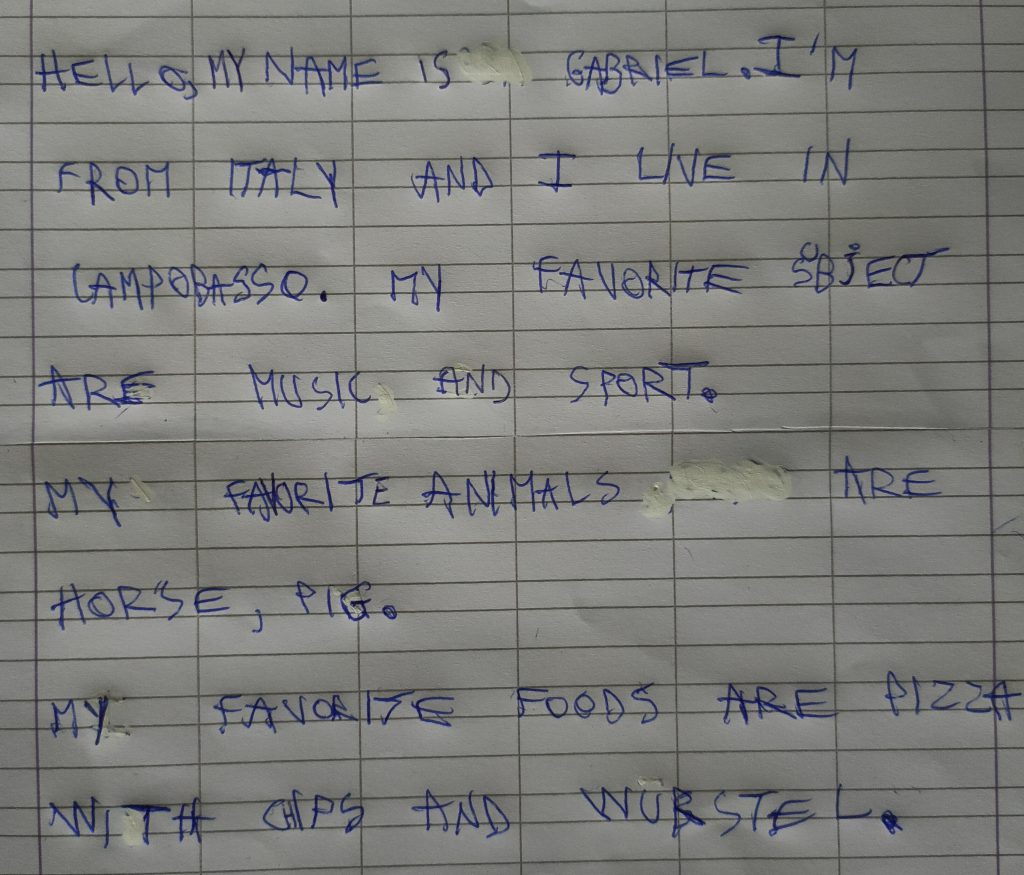 HELLO, MY NAME IS GABRIEL. I'M
FROM ITALY AND I LIVE IN
CAMPOBASSO. MY FAVORITE SUBJECT
ARE MUSIC AND SPORT.
MY FAVORITE ANIMALS ARE
HORSE, PIG.
MY FAVORITE FOODS ARE PIZZA
WITH CHIPS AND WÜRSTEL.